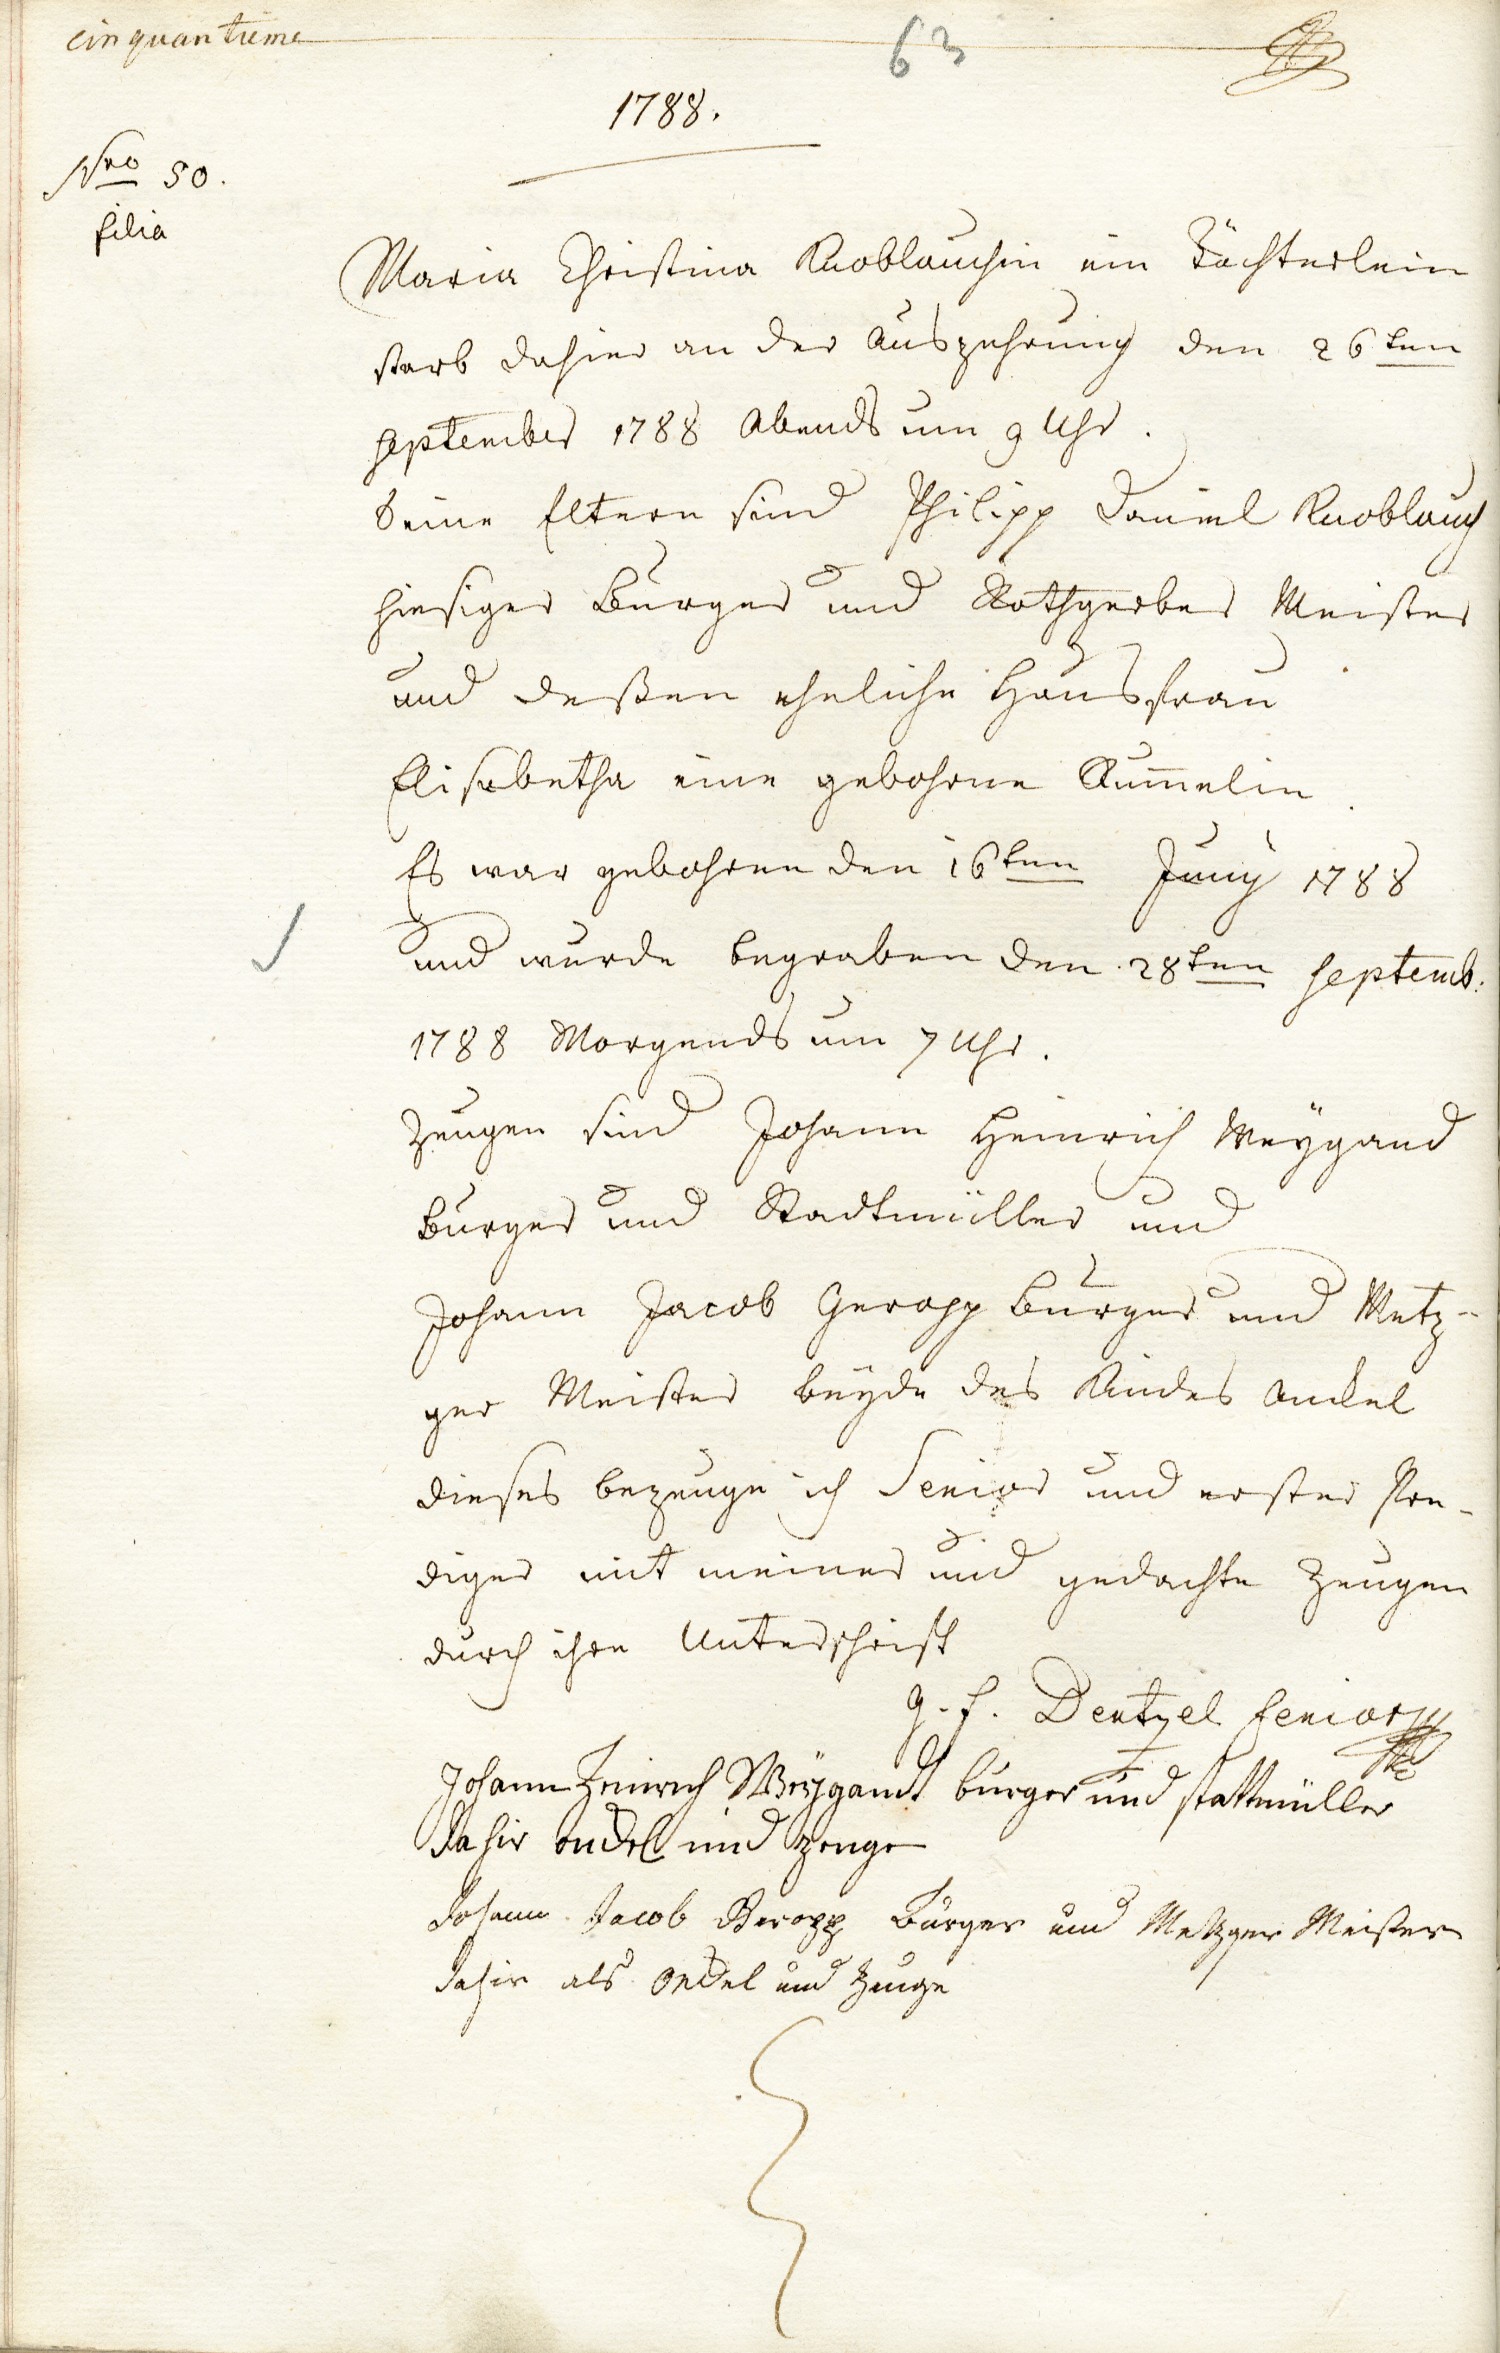 cinquantieme
63
1788.
Nro 50.
filia
Maria Christina Knoblauchin ein Töchterlein
starb dahier an der Auszehrung den 26ten
September 1788 Abends um 9 Uhr.
Seine Eltern sind Philipp Daniel Knoblauch
hiesiger Burger und Rothgerber Meister
und deßen eheliche Hausfrau
Elisabetha eine gebohrne Rum̄elin.
Es war gebohren den 16ten Juny 1788
und wurde begraben den 28ten Septemb.
1788 Morgends um 7 Uhr.
Zeugen sind Johann Heinrich Weygand
Burger und Stadtmüller und
Johann Jacob Geropp Burger und Metz-
ger Meister beyde des Kindes Onckel
dieses bezeuge ich Senior und erster Pre-
diger mit meiner und gedachte Zeugen
durch ihre Unterschrift
G. F. Dentzel Senior
Johann Heinrich Weÿgandt burger und stattmüller
dahir onckel und zeuge
Johann Jacob Geropp Burger und Metzger Meister
dahir als Onckel und Zeuge